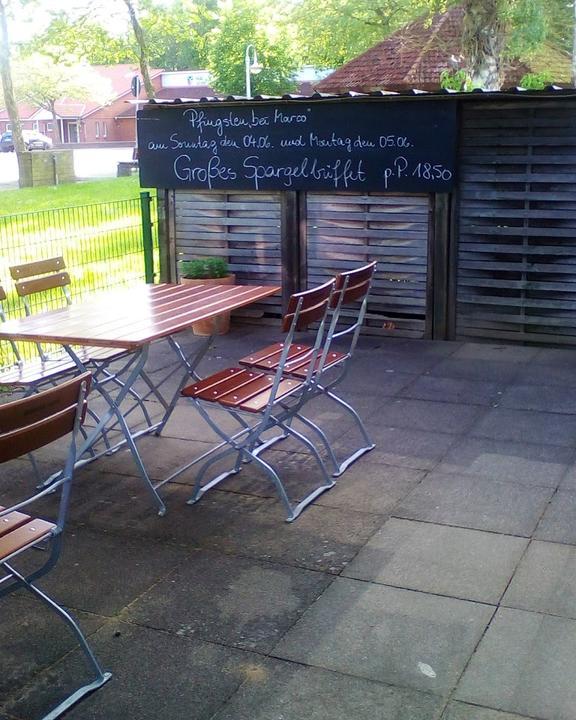 Pfingsten „bei Marco"
am Sonntag den 04.06. und Montag den 05.06.
Großes Spargelbüffet p.P. 18,50